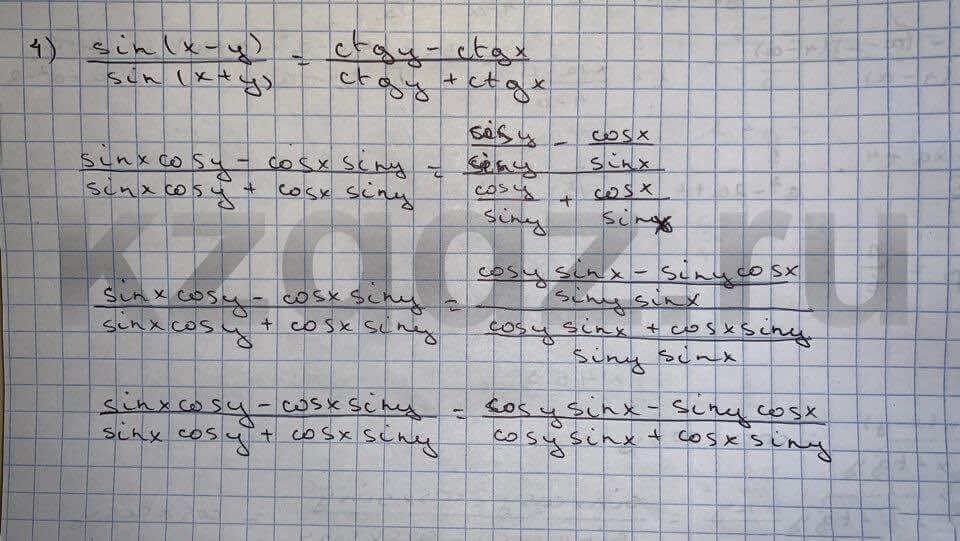 4) sin(x-y) / sin(x+y) = ctgy - ctgx / ctgy + ctgx
sinxcosy - cosxsiny / sinxcosy + cosxsiny = cosy/siny - cosx/sinx / cosy/siny + cosx/sinx
sinxcosy - cosxsiny / sinxcosy + cosxsiny = cosysinx - sinycosx / sinysinx / cosysinx + cosxsiny / sinysinx
sinxcosy - cosxsiny / sinxcosy + cosxsiny = cosysinx - sinycosx / cosysinx + cosxsiny
kzgdz.ru